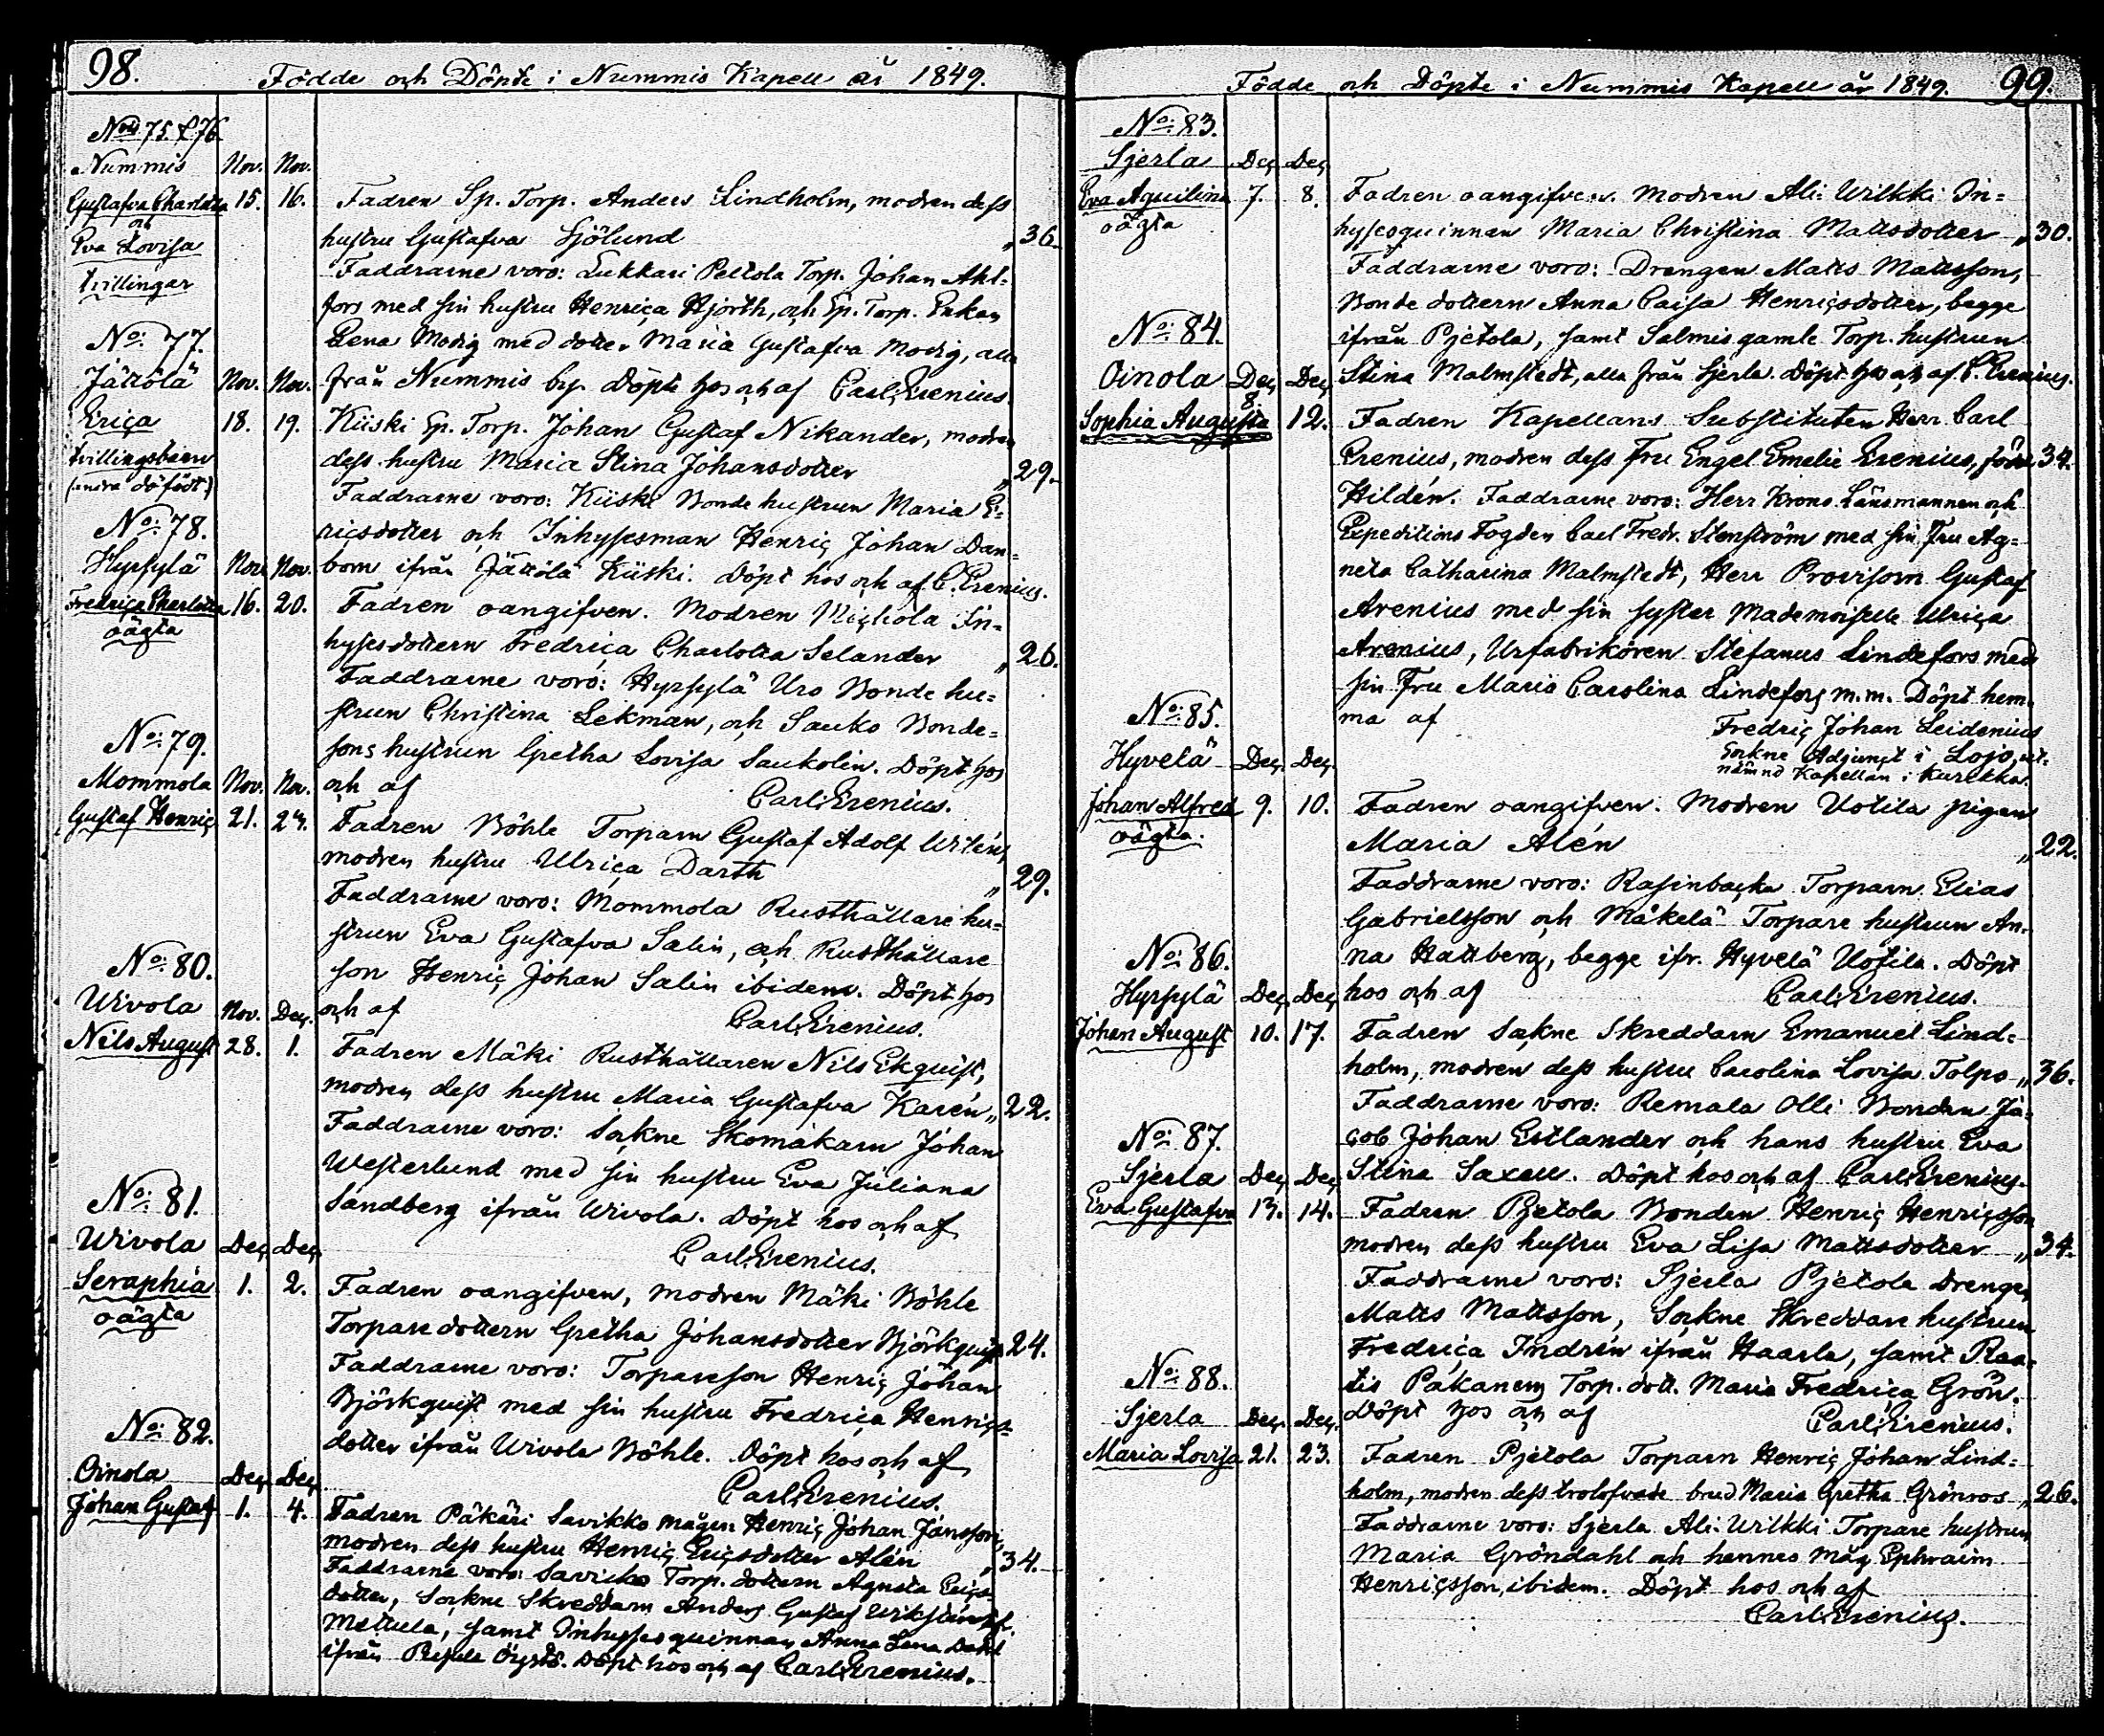 98.
Födde och Döpte i Nummis Kapell år 1849.
No 75 & 76
Nummis Nov. Nov.
Gustafva Charlotta 15. 16.
och
Eva Lovisa
tvillingar
Fadren Sp. Torp. Anders Lindholm, modren dess
hustru Gustafva Sjölund „ 36.
Faddrarne voro: Lukkari Pettola Torp. Johan Ahl-
fors med sin hustru Henrica Hjorth, och Sp. Torp. Enkan
Lena Modig med dotter Maria Gustafva Modig, alla
från Nummis by. Döpte hos och af Carl Erenius.
No: 77.
Jättölä Nov. Nov.
Erica 18. 19.
tvillingsbarn
(andra dödfödt)
Kiiski Sp. Torp. Johan Gustaf Nikander, modren
dess hustru Maria Stina Johansdotter „ 29.
Faddrarne voro: Kiiski Bonde hustrun Maria E-
ricsdotter och Inhysesman Henric Johan Dan-
bom ifrån Jättölä Kiiski. Döpt hos och af C. Erenius.
No: 78.
Hyrsylä Nov. Nov.
Fredrica Charlotta 16. 20.
oägta
Fadren oangifven. Modren Nichola In-
hysesdottern Fredrica Charlotta Selander „ 26.
Faddrarne voro: Hyrsylä Uro Bonde hu-
strun Christina Lekman, och Sauko Bonde-
sons hustrun Gretha Lovisa Saukolin. Döpt hos
och af Carl Erenius.
No: 79.
Mommola Nov. Nov.
Gustaf Henric 21. 27.
Fadren Böhle Torparn Gustaf Adolf Wilén,
modren hustru Ulrica Darth „ 29.
Faddrarne voro: Mommola Rusthållare hu-
strun Eva Gustafva Salin, och Rusthållare
son Henric Johan Salin ibidem. Döpt hos
och af Carl Erenius.
No: 80.
Wivola Nov. Dec.
Nils August 28. 1.
Fadren Mäki Rusthållaren Nils Ekquist,
modren dess hustru Maria Gustafva Karén „ 22.
Faddrarne voro: Sockne Skomakarn Johan
Westerlund med sin hustru Eva Juliana
Sandberg ifrån Wivola. Döpt hos och af
Carl Erenius.
No: 81.
Wivola Dec. Dec.
Seraphia 1. 2.
oägta
Fadren oangifven, modren Mäki Böhle
Torpare dottern Gretha Johansdotter Björkquist 24.
Faddrarne voro: Torpareson Henric Johan
Björkquist med sin hustru Fredrica Henrics-
dotter ifrån Wivola Böhle. Döpt hos och af
Carl Erenius.
No: 82.
Oinola Dec. Dec.
Johan Gustaf 1. 4.
Fadren Päkäri Savikko mågen Henric Johan Jansson,
modren dess hustru Henric Ericsdotter Alén „ 34.
Faddrarne voro: Savikko Torp. dottern Agusta Erics-
dotter, Sockne Skreddarn Anders Gustaf
Mettula, samt Inhysesquinnan Anna Lena Dahl
ifrån Döpt hos och af Carl Erenius.
Födde och Döpte i Nummis Kapell år 1849. 99.
No: 83.
Sjerla Dec. Dec.
Eva Aquilina 7. 8.
oägta
Fadren oangifven. Modren Ali-Wilkki In-
hysesquinnan Maria Christina Mattsdotter „ 30.
Faddrarne voro: Drengen Matts Mattsson,
Bonde dottern Anna Caisa Henricsdotter, begge
ifrån Pjetola, samt Salmis gamle Torp. hustrun
Stina Malmstedt, alla från Sjerla. Döpt hos och af C. Erenius.
No: 84.
Oinola Dec. Dec.
Sophia Augusta 8. 12.
Fadren Kapellans Substituten Herr Carl
Erenius, modren dess Fru Engel Emelie Erenius, född 34.
Hildén. Faddrarne voro: Herr Krono Länsmannen och
Expeditions Fogden Carl Fredr. Stenström med sin Fru Ag-
neta Catharina Malmstedt, Herr Provisorn Gustaf
Arenius med sin syster Mademoiselle Ulrica
Arenius, Urfabrikören Stefanus Lindefors med
sin Fru Maria Carolina Lindefors m.m. Döpt hem-
ma af Fredric Johan Leidenius
Sockne Adjunct i Lojo, ut-
nämnd Kapellan i Kurikka.
No: 85.
Hyvelä Dec. Dec.
Johan Alfred 9. 10.
oägta.
Fadren oangifven. Modren Uotila pigan
Maria Alén „ 22.
Faddrarne voro: Rasinbacka Torparn Elias
Gabrielsson och Mäkelä Torpare hustrun An-
na Hattberg, begge ifr. Hyvelä Uotila. Döpt
hos och af Carl Erenius.
No: 86.
Hyrsylä Dec. Dec.
Johan August 10. 17.
Fadren Sockne Skreddarn Emanuel Lind-
holm, modren dess hustru Carolina Lovisa Tolpo „ 36.
Faddrarne voro: Remala Olli Bonden Ja-
cob Johan Estlander och hans hustru Eva
Stina Saxell. Döpt hos och af Carl Erenius.
No: 87.
Sjerla Dec. Dec.
Eva Gustafva 13. 14.
Fadren Pjetola Bonden Henric Henricsson
modren dess hustru Eva Lisa Mattsdotter „ 34.
Faddrarne voro: Sjerla Pjetola drengen
Matts Mattsson, Sockne Skreddare hustrun
Fredrica Indrén ifrån Haarla, samt Raa-
tis Pakanen Torp. dott. Maria Fredrica Grön.
Döpt hos och af Carl Erenius.
No: 88.
Sjerla Dec. Dec.
Maria Lovisa 21. 23.
Fadren Pjetola Torparn Henric Johan Lind-
holm, modren dess trolofvade brud Maria Gretha Grönroos „ 26.
Faddrarne voro: Sjerla Ali-Wilkki Torpare hustrun
Maria Gröndahl och hennes måg Ephraim
Henricsson, ibidem. Döpt hos och af
Carl Erenius.